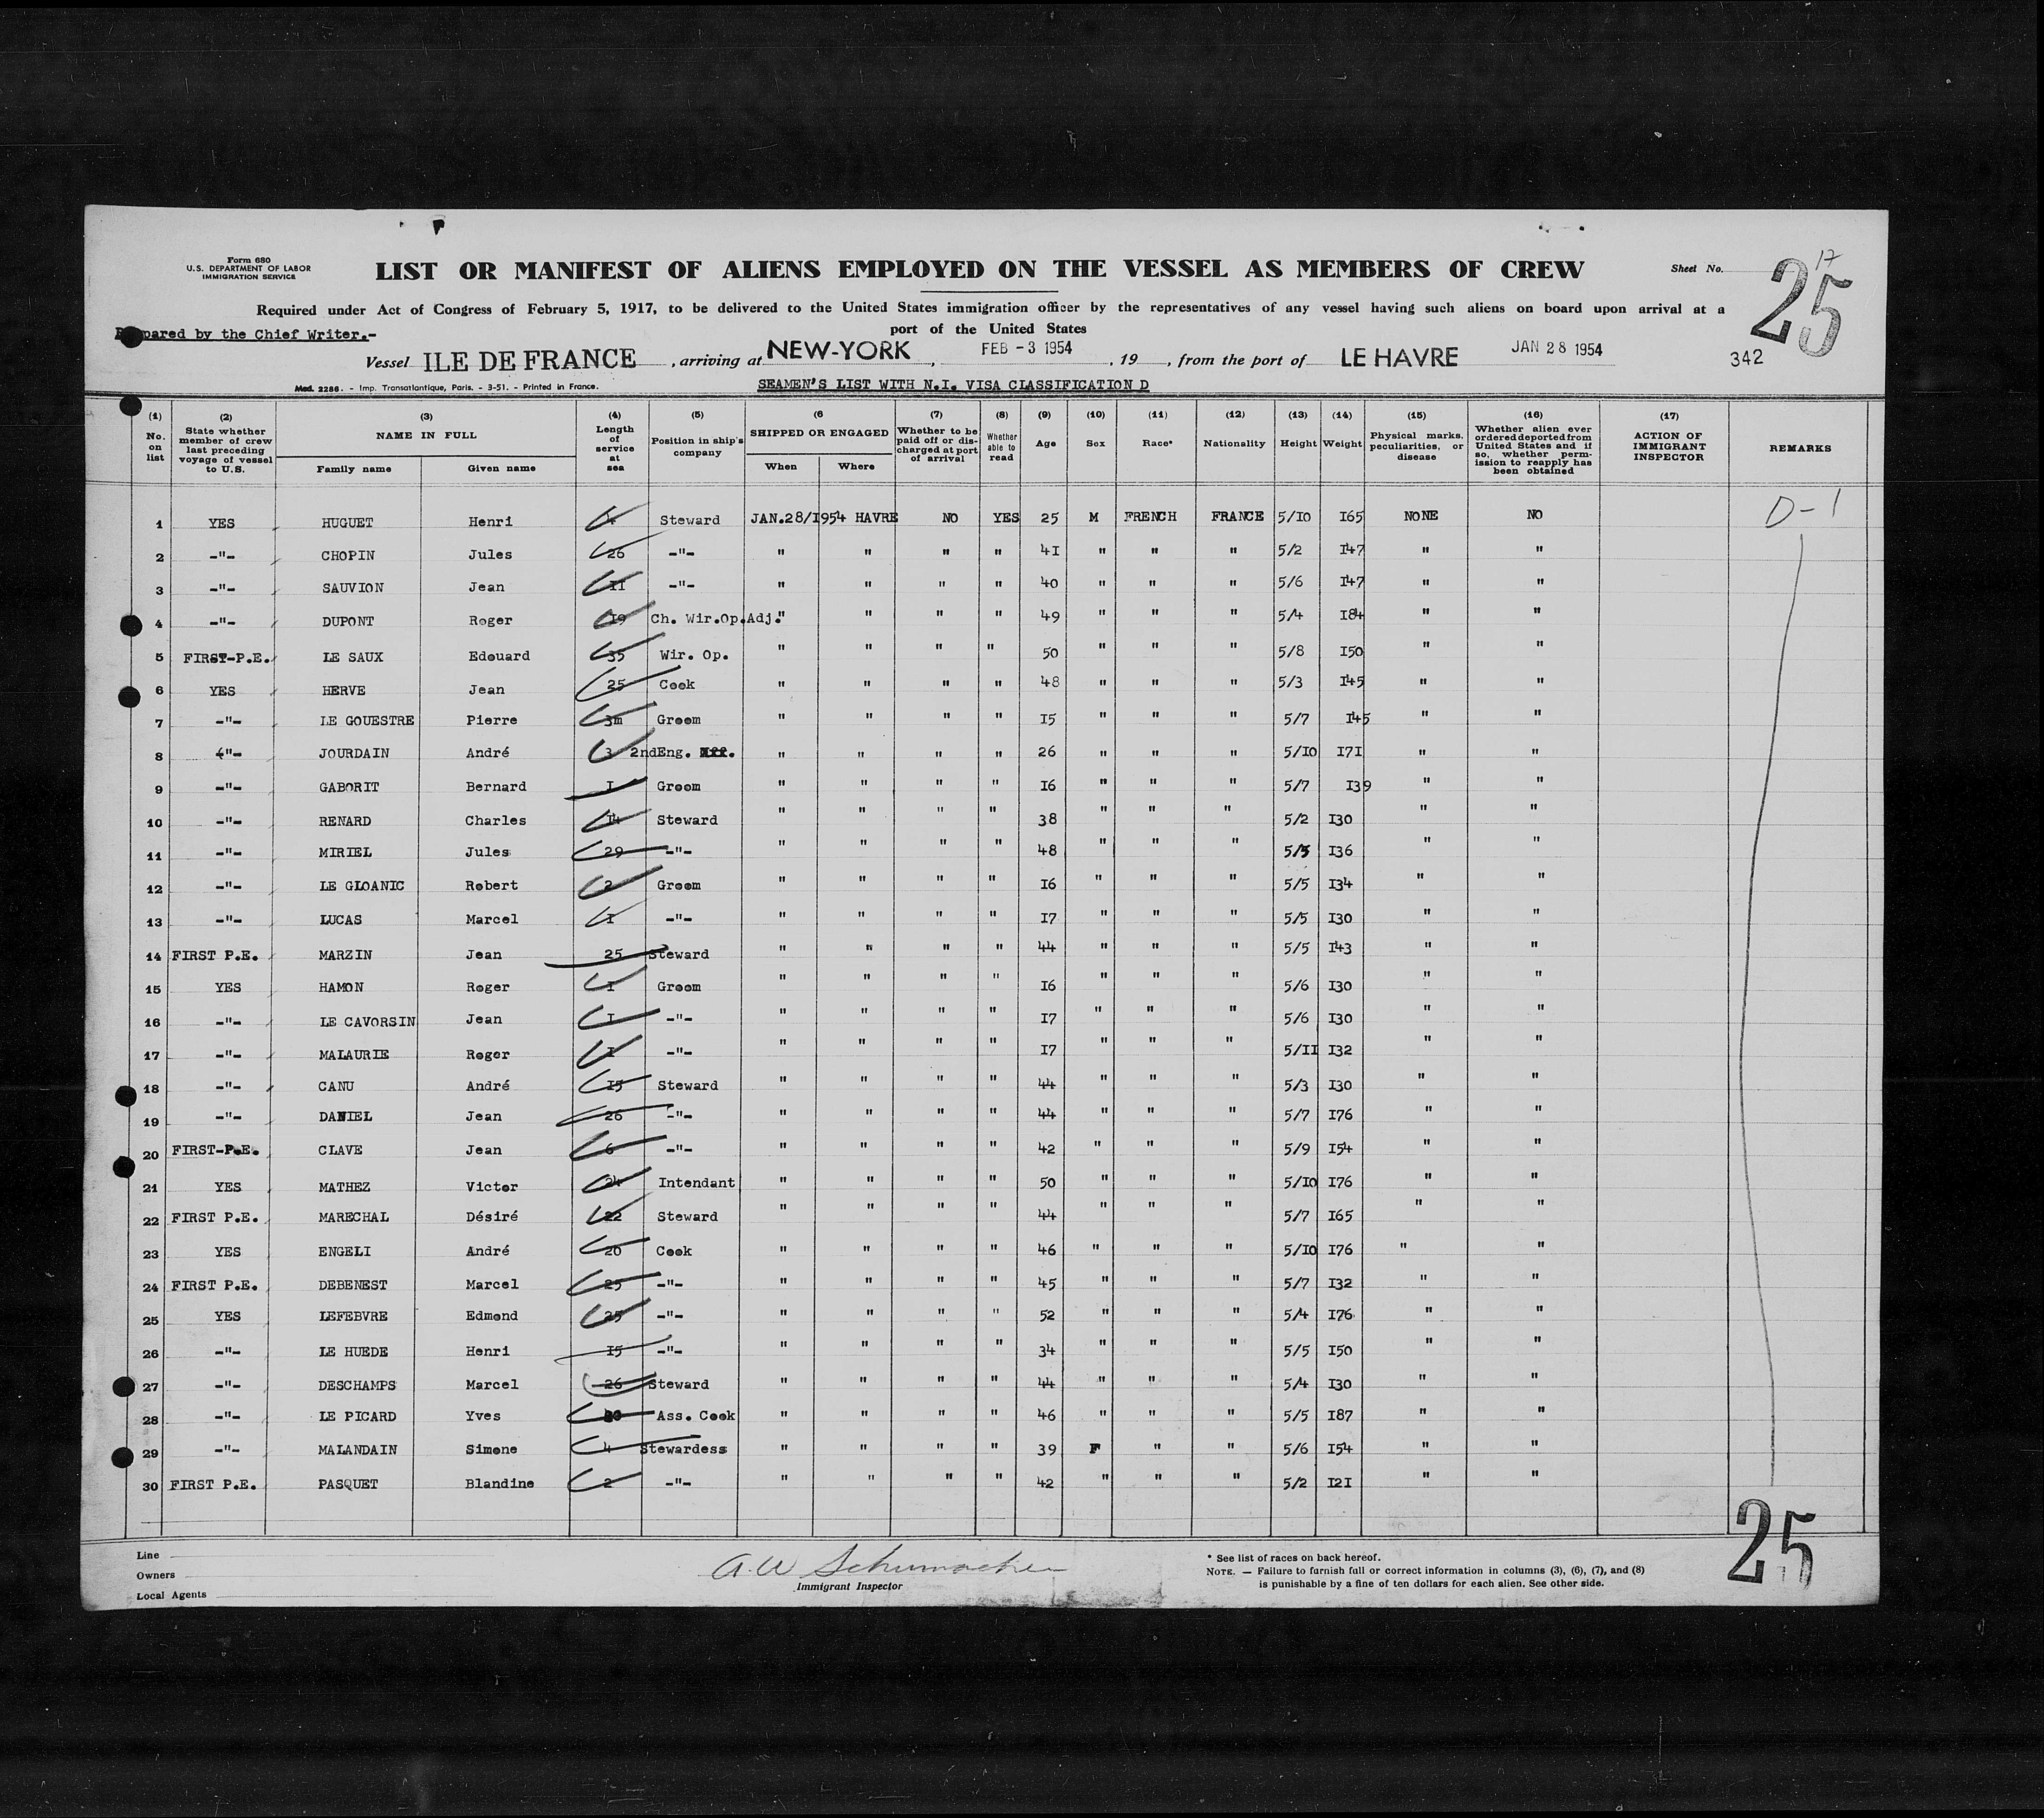 Form 680
U.S. DEPARTMENT OF LABOR
IMMIGRATION SERVICE
LIST OR MANIFEST OF ALIENS EMPLOYED ON THE VESSEL AS MEMBERS OF CREW
Sheet No. 17
25
Required under Act of Congress of February 5, 1917, to be delivered to the United States immigration officer by the representatives of any vessel having such aliens on board upon arrival at a
port of the United States
Prepared by the Chief Writer.-
Vessel ILE DE FRANCE, arriving at NEW-YORK, FEB - 3 1954, 19, from the port of LE HAVRE JAN 28 1954
342
Mod. 2286. - Imp. Transatlantique, Paris. - 3-51. - Printed in France.
SEAMEN'S LIST WITH N.I. VISA CLASSIFICATION D
(1) No. on list (2) State whether member of crew last preceding voyage of vessel to U.S. (3) NAME IN FULL Family name Given name (4) Length of service at sea (5) Position in ship's company (6 SHIPPED OR ENGAGED When Where (7) Whether to be paid off or discharged at port of arrival (8) Whether able to read (9) Age (10) Sex (11) Race* (12) Nationality (13) Height (14) Weight (15) Physical marks, peculiarities, or disease (16) Whether alien ever ordered deported from United States and if so, whether permission to reapply has been obtained (17) ACTION OF IMMIGRANT INSPECTOR REMARKS
1 YES HUGUET Henri 4 Steward JAN.28/1954 HAVRE NO YES 25 M FRENCH FRANCE 5/10 165 NONE NO D-1
2 -"- CHOPIN Jules 26 -"- " " " " 41 " " " 5/2 147 " "
3 -"- SAUVION Jean 11 -"- " " " " 40 " " " 5/6 147 " "
4 -"- DUPONT Roger 19 Ch. Wir.Op.Adj. " " " " 49 " " " 5/4 184 " "
5 FIRST-P.E. LE SAUX Edouard 35 Wir. Op. " " " " 50 " " " 5/8 150 " "
6 YES HERVE Jean 25 Cook " " " " 48 " " " 5/3 145 " "
7 -"- LE GOUESTRE Pierre 3m Groom " " " " 15 " " " 5/7 145 " "
8 -"- JOURDAIN André 3 2ndEng. " " " " 26 " " " 5/10 171 " "
9 -"- GABORIT Bernard 1 Groom " " " " 16 " " " 5/7 139 " "
10 -"- RENARD Charles 14 Steward " " " " 38 " " " 5/2 130 " "
11 -"- MIRIEL Jules 29 -"- " " " " 48 " " " 5/5 136 " "
12 -"- LE GLOANIC Robert 2 Groom " " " " 16 " " " 5/5 134 " "
13 -"- LUCAS Marcel 1 -"- " " " " 17 " " " 5/5 130 " "
14 FIRST P.E. MARZIN Jean 25 Steward " " " " 44 " " " 5/5 143 " "
15 YES HAMON Roger 1 Groom " " " " 16 " " " 5/6 130 " "
16 -"- LE CAVORSIN Jean 1 -"- " " " " 17 " " " 5/6 130 " "
17 -"- MALAURIE Roger 1 -"- " " " " 17 " " " 5/11 132 " "
18 -"- CANU André 15 Steward " " " " 44 " " " 5/3 130 " "
19 -"- DANIEL Jean 26 -"- " " " " 44 " " " 5/7 176 " "
20 FIRST-P.E. CLAVE Jean 6 -"- " " " " 42 " " " 5/9 154 " "
21 YES MATHEZ Victor 24 Intendant " " " " 50 " " " 5/10 176 " "
22 FIRST P.E. MARECHAL Désiré 22 Steward " " " " 44 " " " 5/7 165 " "
23 YES ENGELI André 20 Cook " " " " 46 " " " 5/10 176 " "
24 FIRST P.E. DEBENEST Marcel 25 -"- " " " " 45 " " " 5/7 132 " "
25 YES LEFEBVRE Edmond 25 -"- " " " " 52 " " " 5/4 176 " "
26 -"- LE HUEDE Henri 15 -"- " " " " 34 " " " 5/5 150 " "
27 -"- DESCHAMPS Marcel 26 Steward " " " " 44 " " " 5/4 130 " "
28 -"- LE PICARD Yves Ass. Cook " " " " 46 " " " 5/5 187 " "
29 -"- MALANDAIN Simone 4 Stewardess " " " " 39 F " " 5/6 154 " "
30 FIRST P.E. PASQUET Blandine 2 -"- " " " " 42 " " " 5/2 121 " "
25
Line
Owners
Local Agents
A. W Schumacher
Immigrant Inspector
* See list of races on back hereof.
NOTE. — Failure to furnish full or correct information in columns (3), (6), (7), and (8)
is punishable by a fine of ten dollars for each alien. See other side.